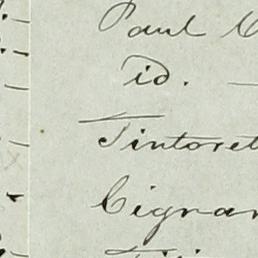 Paul
id. —
Tintoret
Cignar